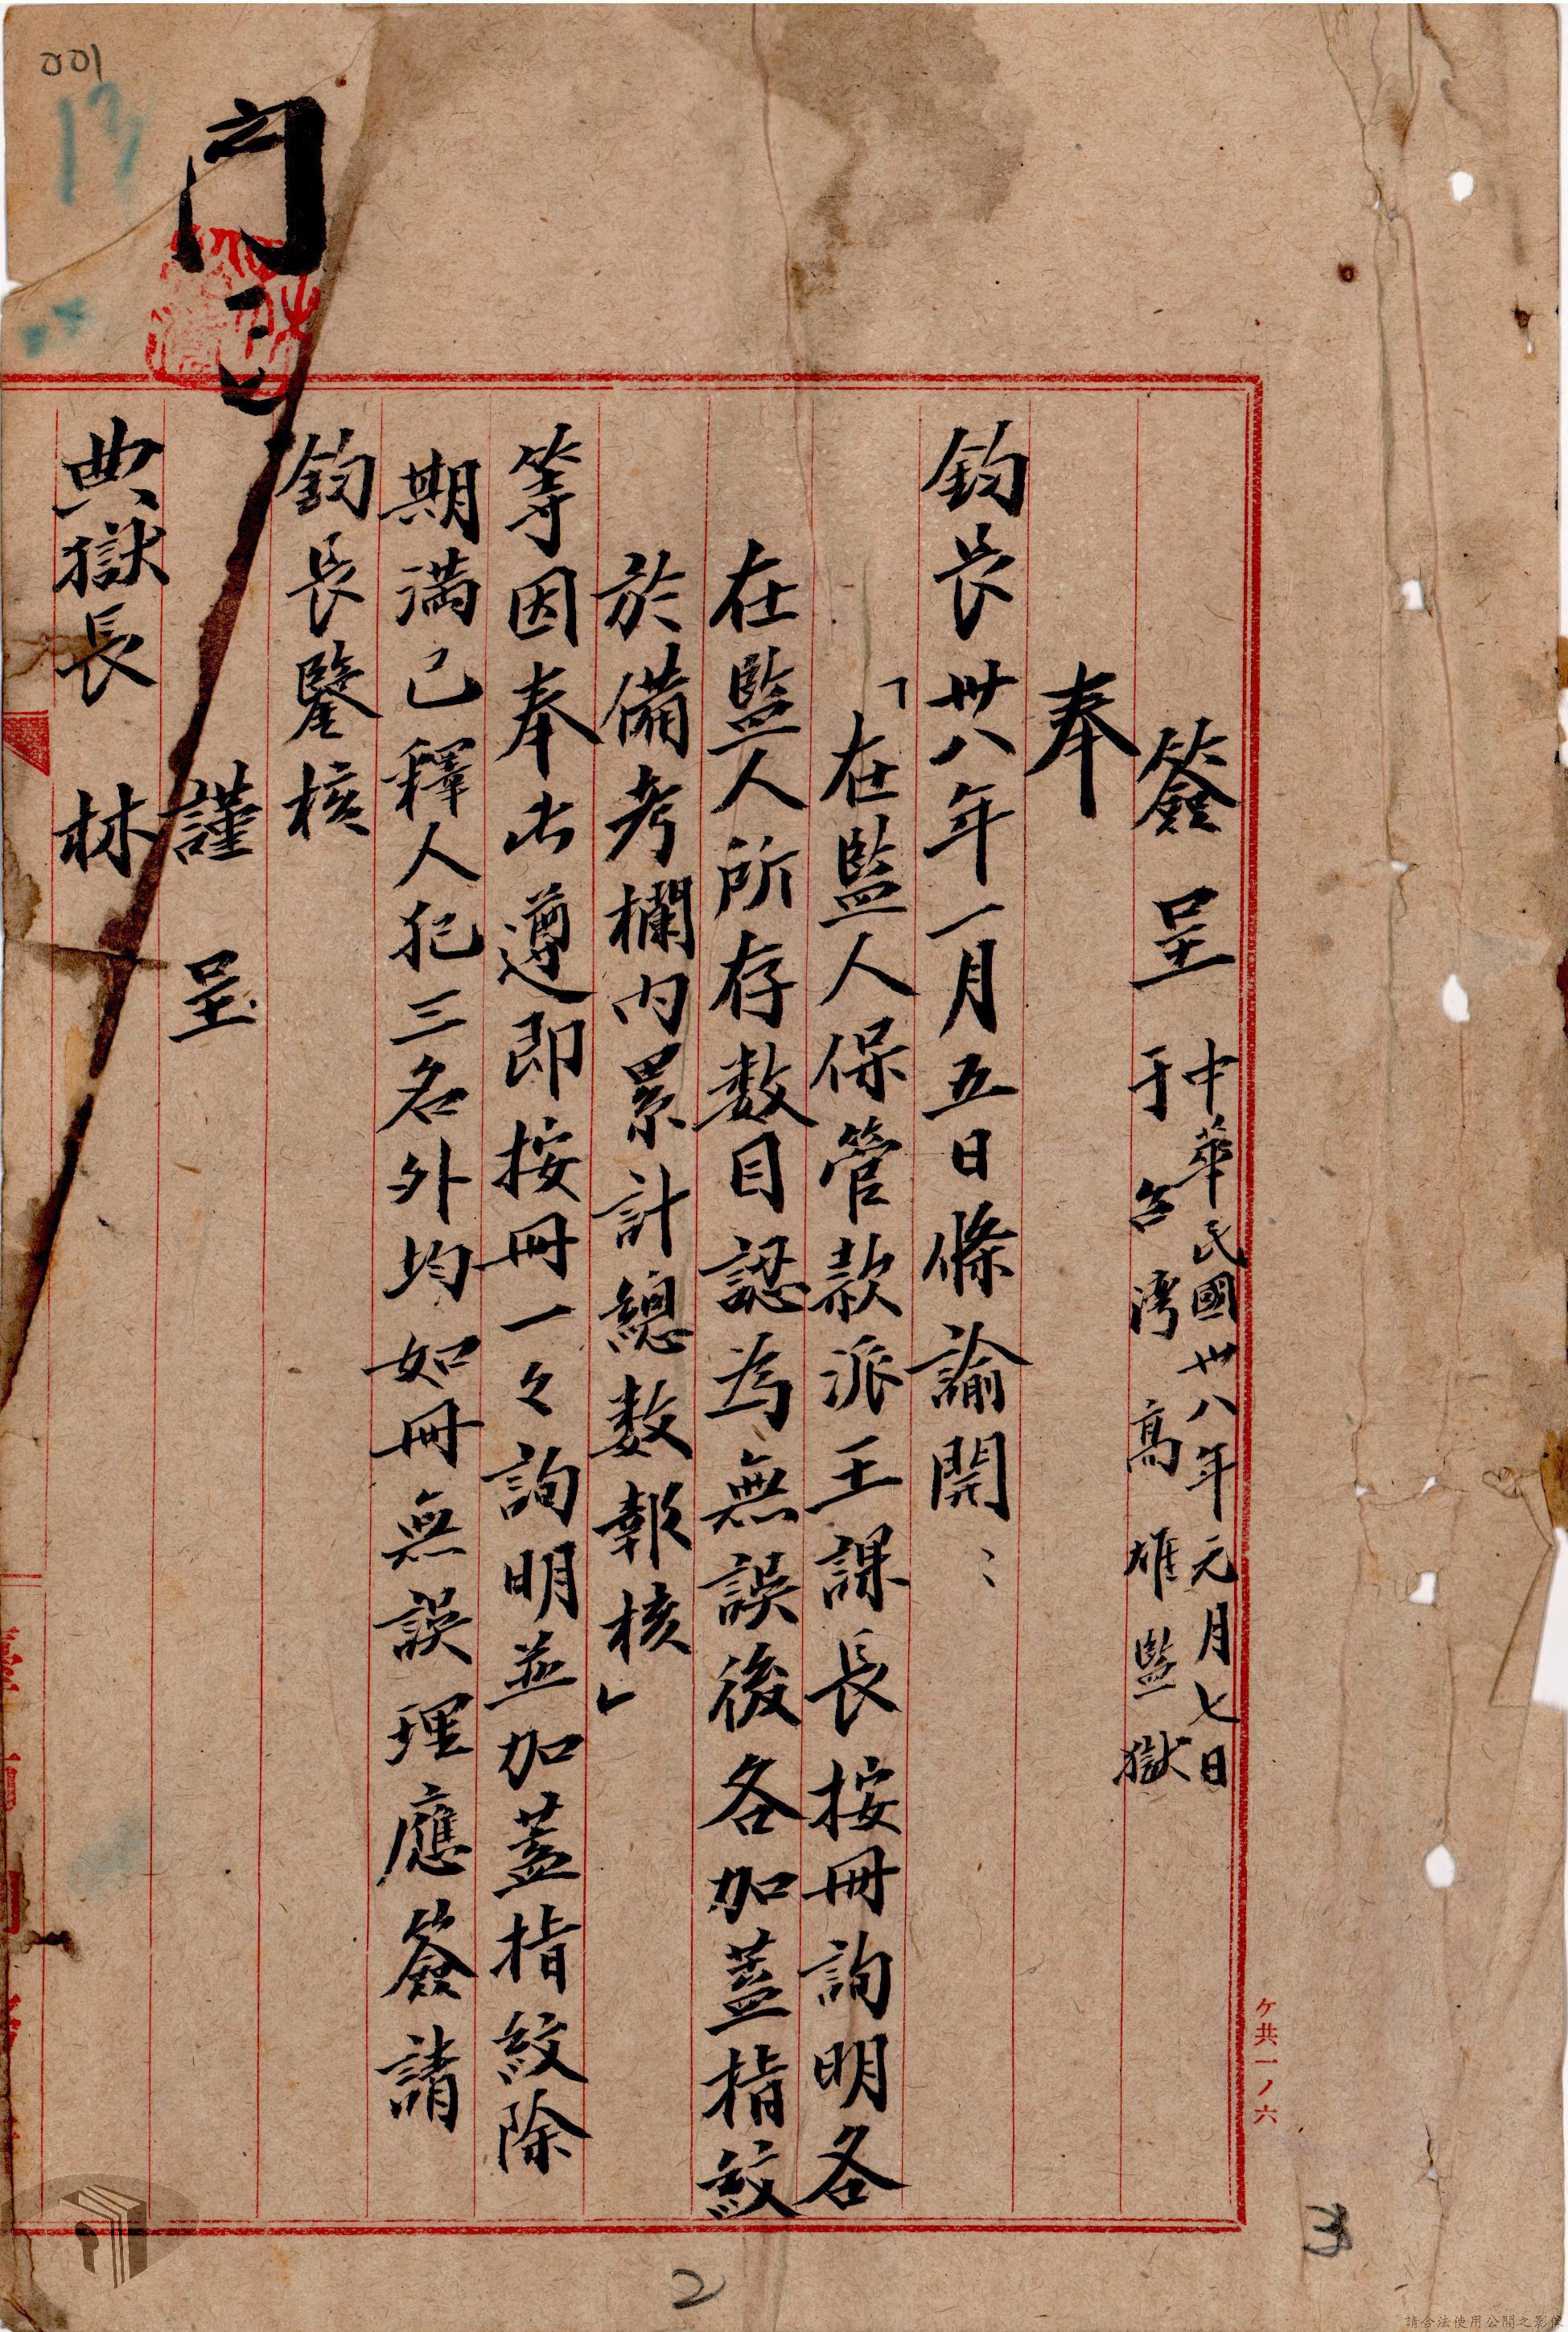 簽呈 中華民國卅八年元月七日
于台湾高雄監獄
奉
鈞長卅八年一月五日條諭開：
「在監人保管款派王課長按冊詢明各
在監人所存数目認為無誤後各加蓋指紋
於備考欄内累計總数報核」
等因奉此遵即按冊一々詢明並加蓋指紋除
期滿已釋人犯三名外均如冊無誤理應簽請
鈞長鑒核
謹呈
典獄長 林
001
13
ケ共一ノ六
3
2
請合法使用公開之影像